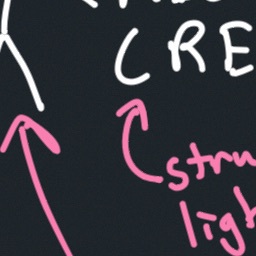 CRE
stru
ligh